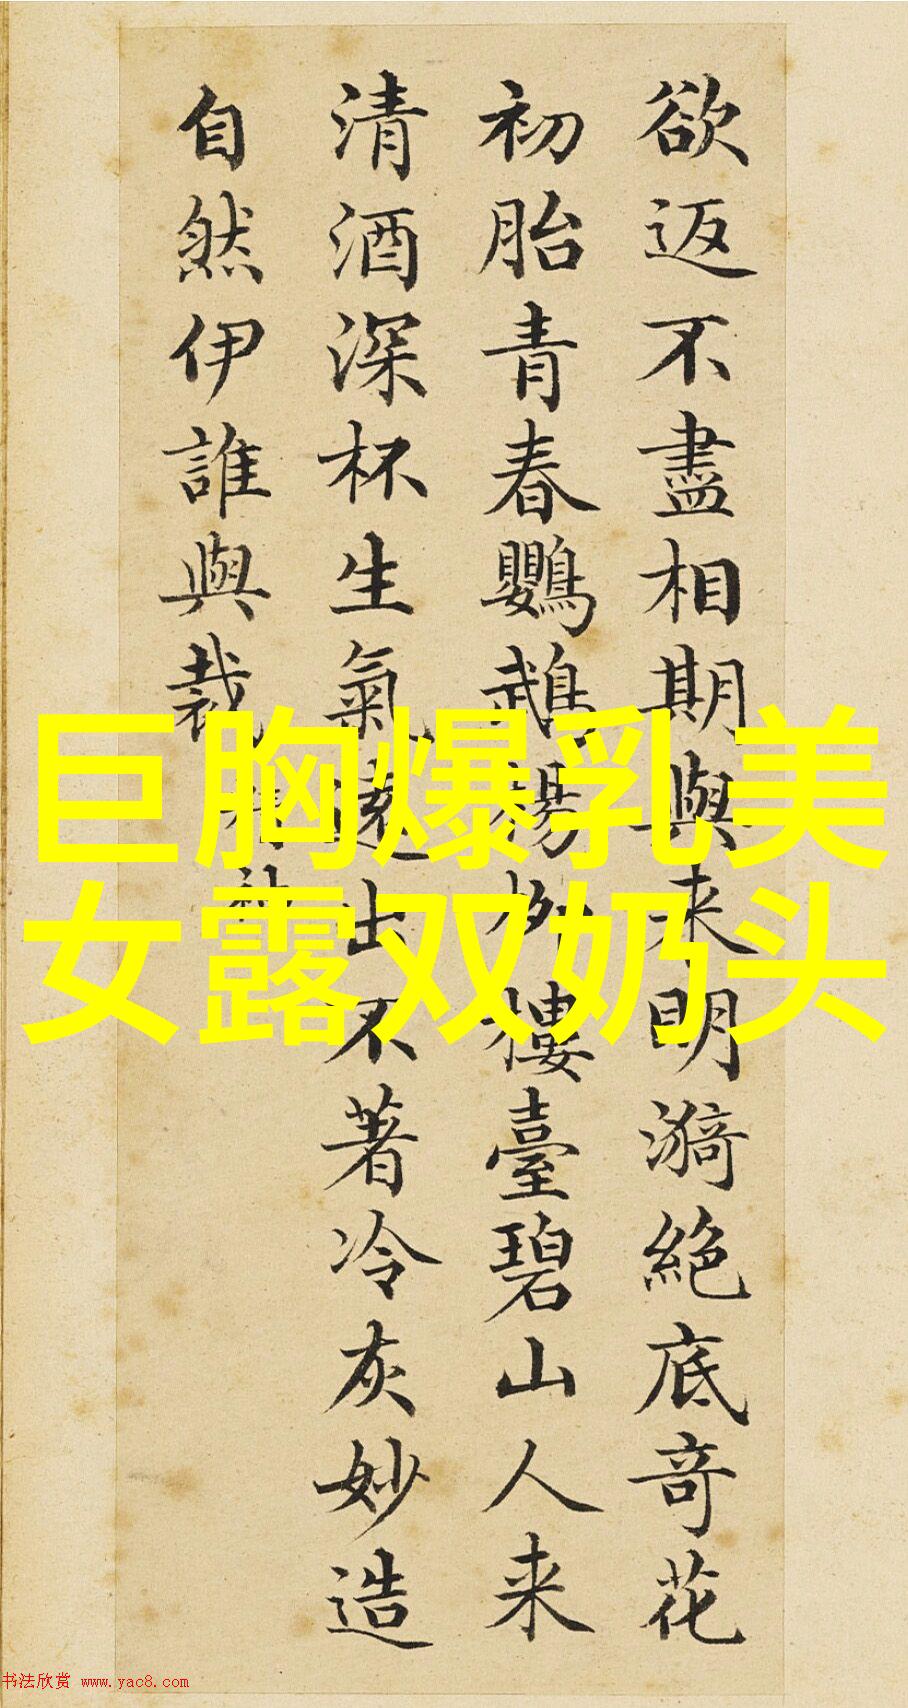 欲返不盡相期與来明漪絕底竒花
初胎青春鸚鵡楊柳樓臺碧山人来
清酒深杯生氣遠出不著冷灰妙造
自然伊誰與裁
精神
巨胸爆乳美
女露双奶头
书法欣赏 www.yac8.com